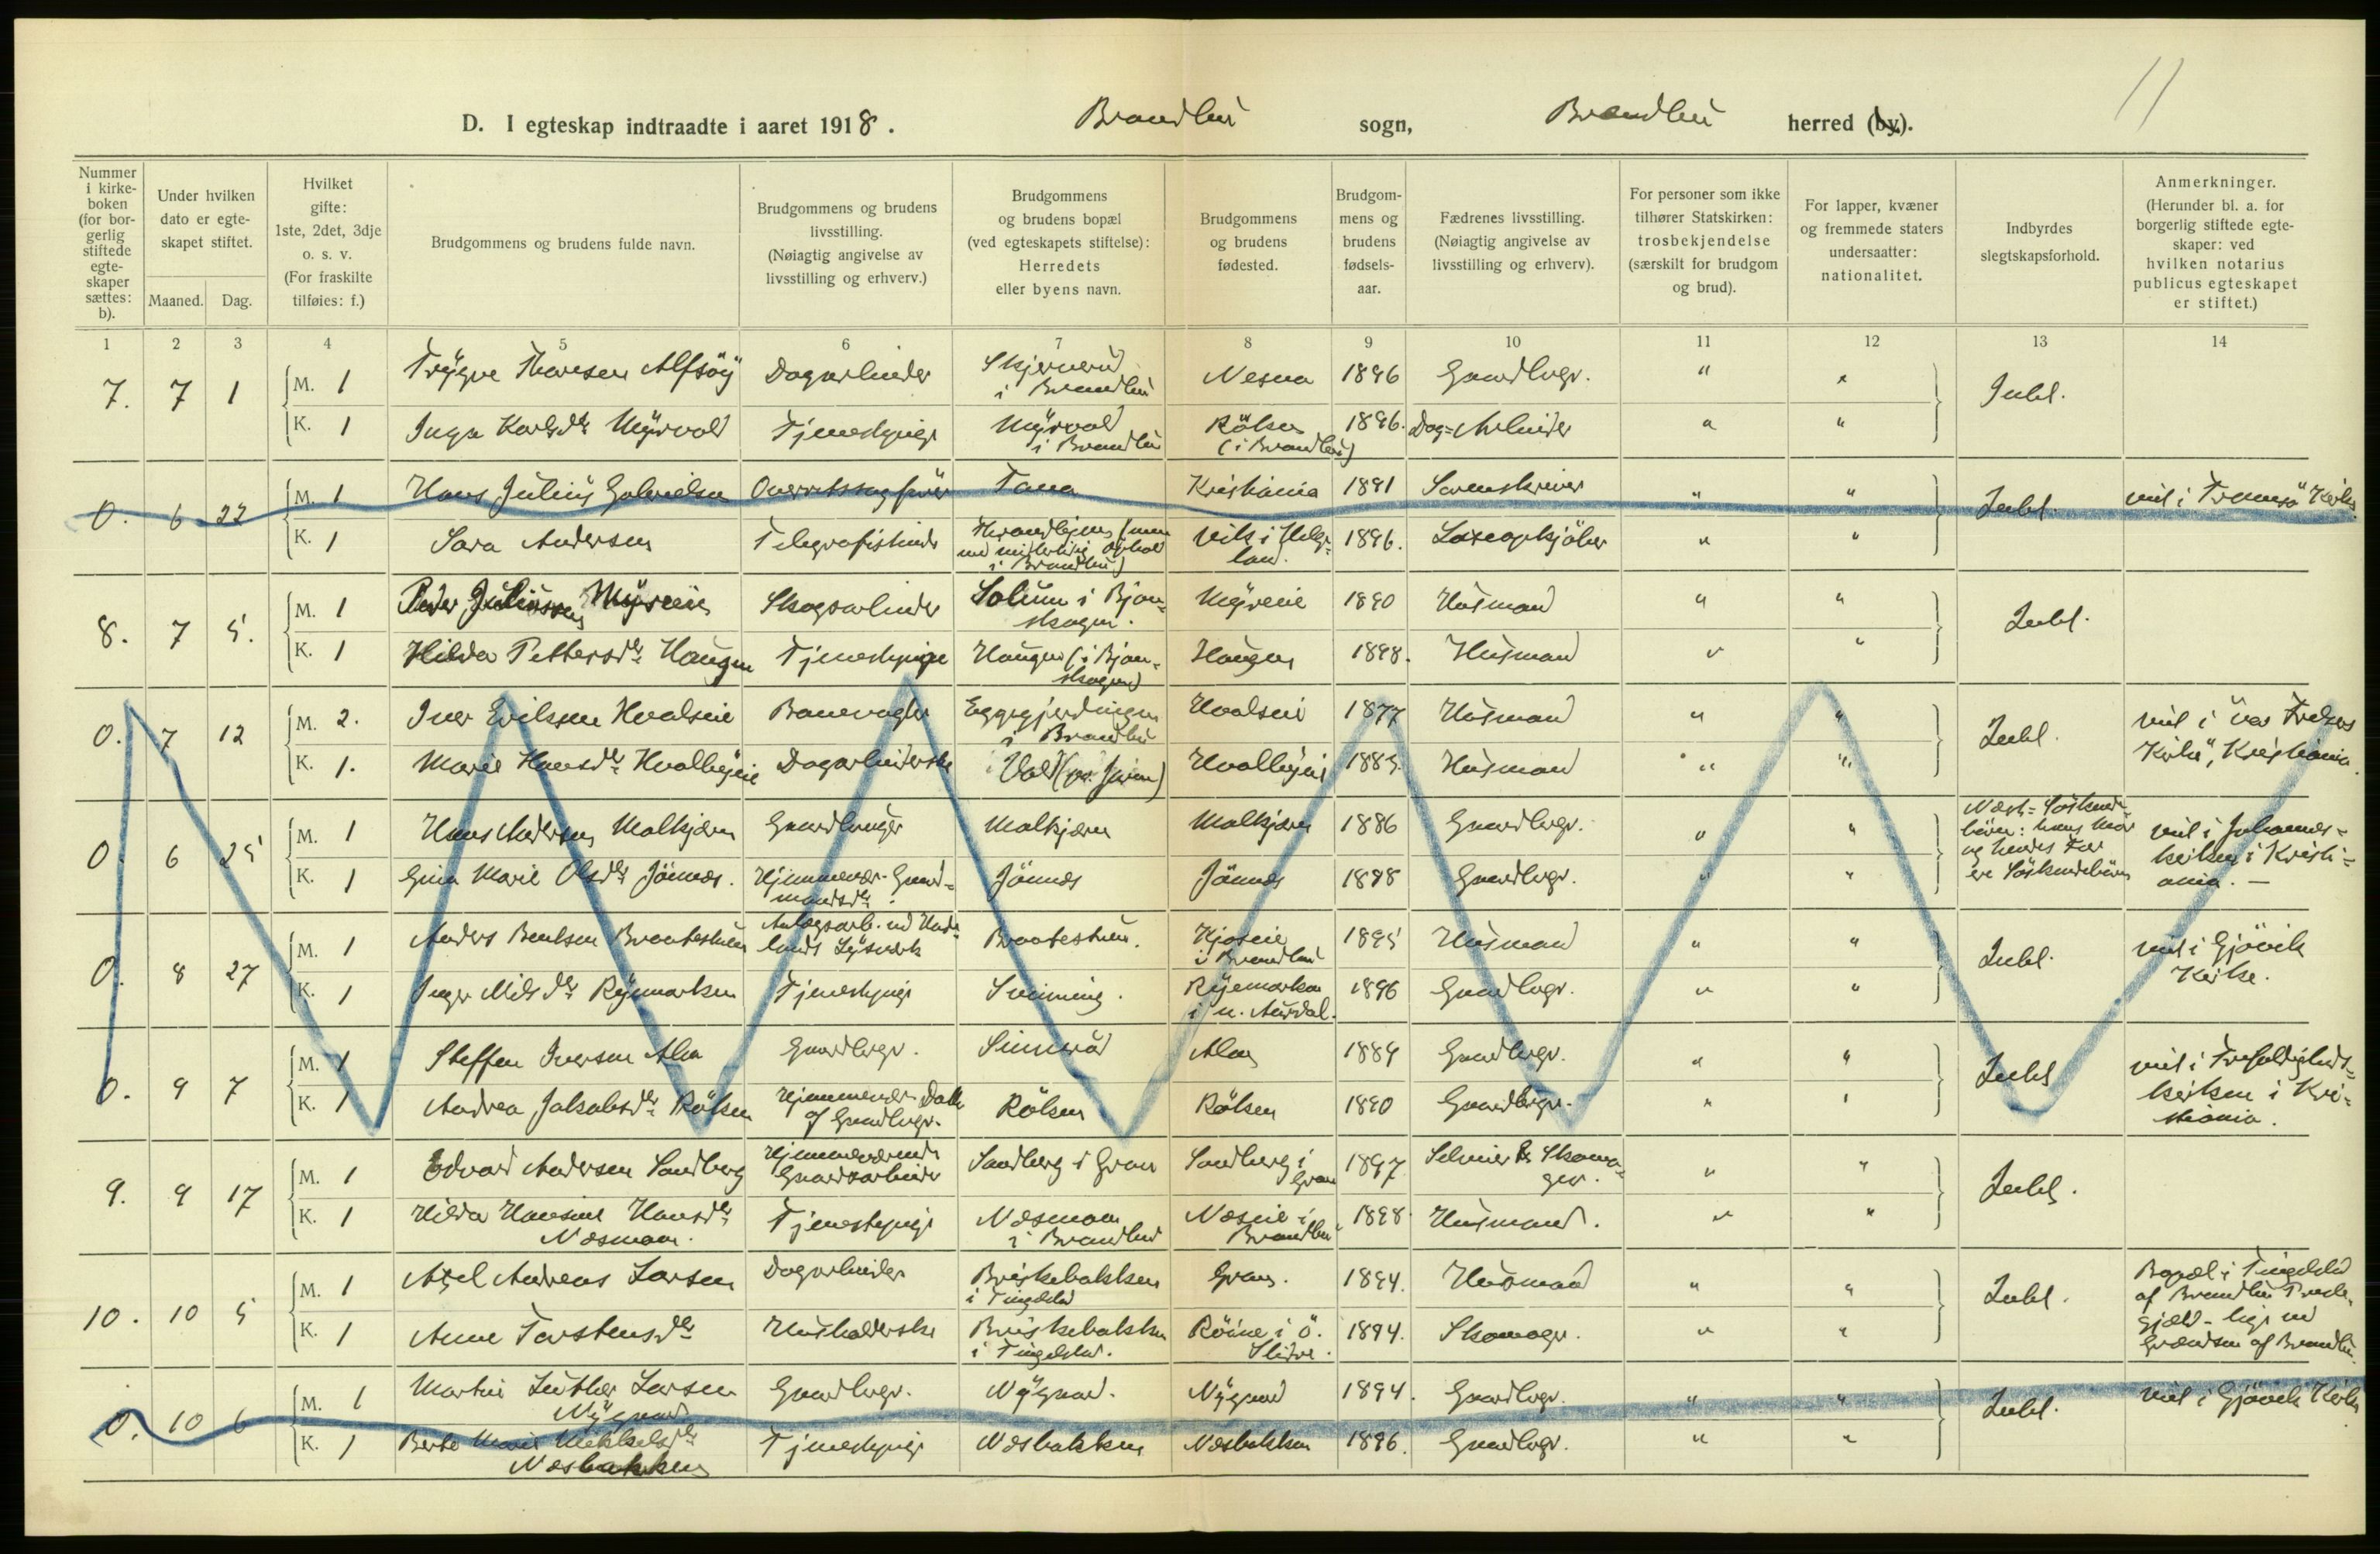 11
D. I egteskap indtraadte i aaret 1918. Brandbu sogn, Brandbu herred (by).
Nummer i kirke-boken (for bor-gerlig stiftede egte-skaper sættes: b).
Under hvilken dato er egte-skapet stiftet.
Maaned. Dag.
Hvilket gifte: 1ste, 2det, 3dje o. s. v. (For fraskilte tilføies: f.)
Brudgommens og brudens fulde navn.
Brudgommens og brudens livsstilling. (Nøiagtig angivelse av livsstilling og erhverv.)
Brudgommens og brudens bopæl (ved egteskapets stiftelse): Herredets eller byens navn.
Brudgommens og brudens fødested.
Brudgom-mens og brudens fødsels-aar.
Fædrenes livsstilling. (Nøiagtig angivelse av livsstilling og erhverv).
For personer som ikke tilhører Statskirken: trosbekjendelse (særskilt for brudgom og brud).
For lapper, kvæner og fremmede staters undersaatter: nationalitet.
Indbyrdes slegtskapsforhold.
Anmerkninger. (Herunder bl. a. for borgerlig stiftede egte-skaper: ved hvilken notarius publicus egteskapet er stiftet.)
1 2 3 4 5 6 7 8 9 10 11 12 13 14
7. 7 1 M. 1 Trygve Thoresen Alfsöy Dagarbeider Skjerverud i Brandbu Nesna 1896 Gaardbrgr. " " Intet.
K. 1 Inga Karlsdtr Myrvold Tjenestepige Myrvold i Brandbu Rölsen (i Brandbu) 1896. Dag=Arbeider " "
0. 6 22 M. 1 Hans Julius Gabrielsen Overretssagförer Tana Kristiania 1891 Sorenskriver " " Intet. viet i Tromsö Kirke
K. 1 Sara Andersen Telegrafistinde Throndhjem i Brandbu) Vik i Helge-land. 1896. Lax=opkjöber " "
8. 7 5. M. 1 Peder Juliussen Myreie Skogsarbeider Solum i Bjon-skogen. Myreie 1890 Husmand " " Intet.
K. 1 Hilda Pettersdtr Haugen Tjenestepige Haugen (i Bjon-skogen) Haugen 1898. Husmand " "
0. 7 12 M. 2. Iver Erilsen Hvalseie Banevogter Eggegjerdingen i Brandbu Hvalseie 1877 Husmand " " Intet. viet i "Vor Frelsers Kirke", Kristiania.
K. 1. Marie Hansdtr Hvalbyeie Dagarbeiderske Vold (pr. Jaren) Hvalbyeie 1883. Husmand " "
0. 6 25 M. 1 Hans Andersen Molkjærn Gaardbruger Molkjærn Molkjærn 1886 Gaardbrgr. " " Næst=Söskende-börn: hans Mor og hendes Far ere Söskendebörn viet i Johannes=kirken i Kristi=ania. —
K. 1 Gina Marie Olsdtr Jönnes. Hjemmevær. Gaard=mandsdtr. Jönnes Jönnes 1888 Gaardbrgr. " "
0. 8 27 M. 1 Anders Bentsen Braatestuen Anlægsarb. ved Hade-lands Lysværk Braatestuen. Hjoseie i Brandbu 1895 Husmand " " Intet. viet i Gjövik Kirke.
K. 1 Inger Nilsdtr Ryemarken Tjenestepige Svinning. Ryemarken i n. Aurdal. 1896 Gaardbrgr. " "
0. 9 7 M. 1 Steffen Iversen Alm Gaardbrgr. Sinnerud Alm 1889 Gaardbrgr. " " Intet viet i Trefoldigheds=kirken i Kri=stiania.
K. 1 Andrea Jakobsdtr Rölsen Hjemmevær. Datter af Gaardbrgr. Rölsen Rölsen 1890 Gaardbrgr. " "
9. 9 17 M. 1 Edvard Andersen Sandberg Hjemmeværende Gaardsarbeider Sandberg i Gran Sandberg i Gran 1897. Selveier & Skoma=ger. " " Intet.
K. 1 Hilda Hansine Hansdtr Næsmoen. Tjenestepige Næsmoen i Brandbu Næseie i Brandbu 1898. Husmand. " "
10. 10 5 M. 1 Axel Andreas Larsen Dagarbeider Briskebakken i Tingelstad Gran. 1894. Husmand " " Intet. Bopæl i Tingelstad af Brandbu Præste-gjæld - lige ved Grændsen af Brandbu.
K. 1 Anne Torstensdtr Husholderske Briskebakken i Tingelstad. Röine i ö. Slidre. 1894. Skomager. " "
0. 10 6 M. 1 Martin Luther Larsen Nygaard Gaardbrgr. Nygaard. Nygaard 1894. Gaardbrgr. " " Intet. viet i Gjövik Kirke
K. 1 Berte Marie Mikkelsdtr Næsbakken Tjenestepige Næsbakken Næsbakken 1896. Gaardbrgr. " "